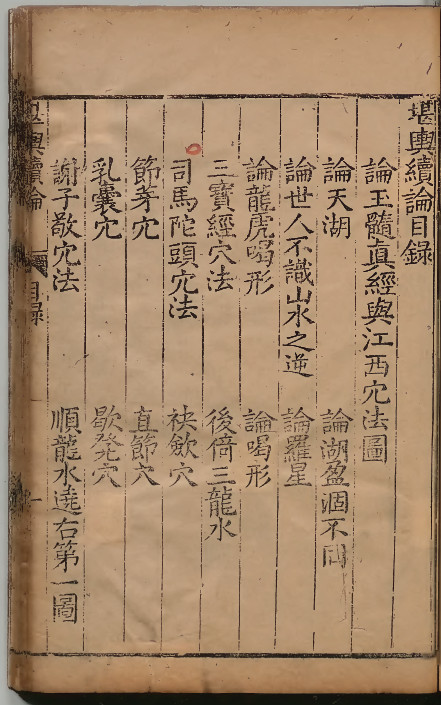 堪輿續論目錄
論玉髓真經與江西穴法圖
論天湖 論湖盈涸不同
論世人不識山水之逆 論羅星
論龍虎喝形 論喝形
三寶經穴法 後倚三龍水
司馬陀頭穴法 袂斂穴
節芽穴 直節穴
乳囊穴 歇殍穴
謝子敬穴法 順龍水遶右第一圖
堪輿續論 目錄 一